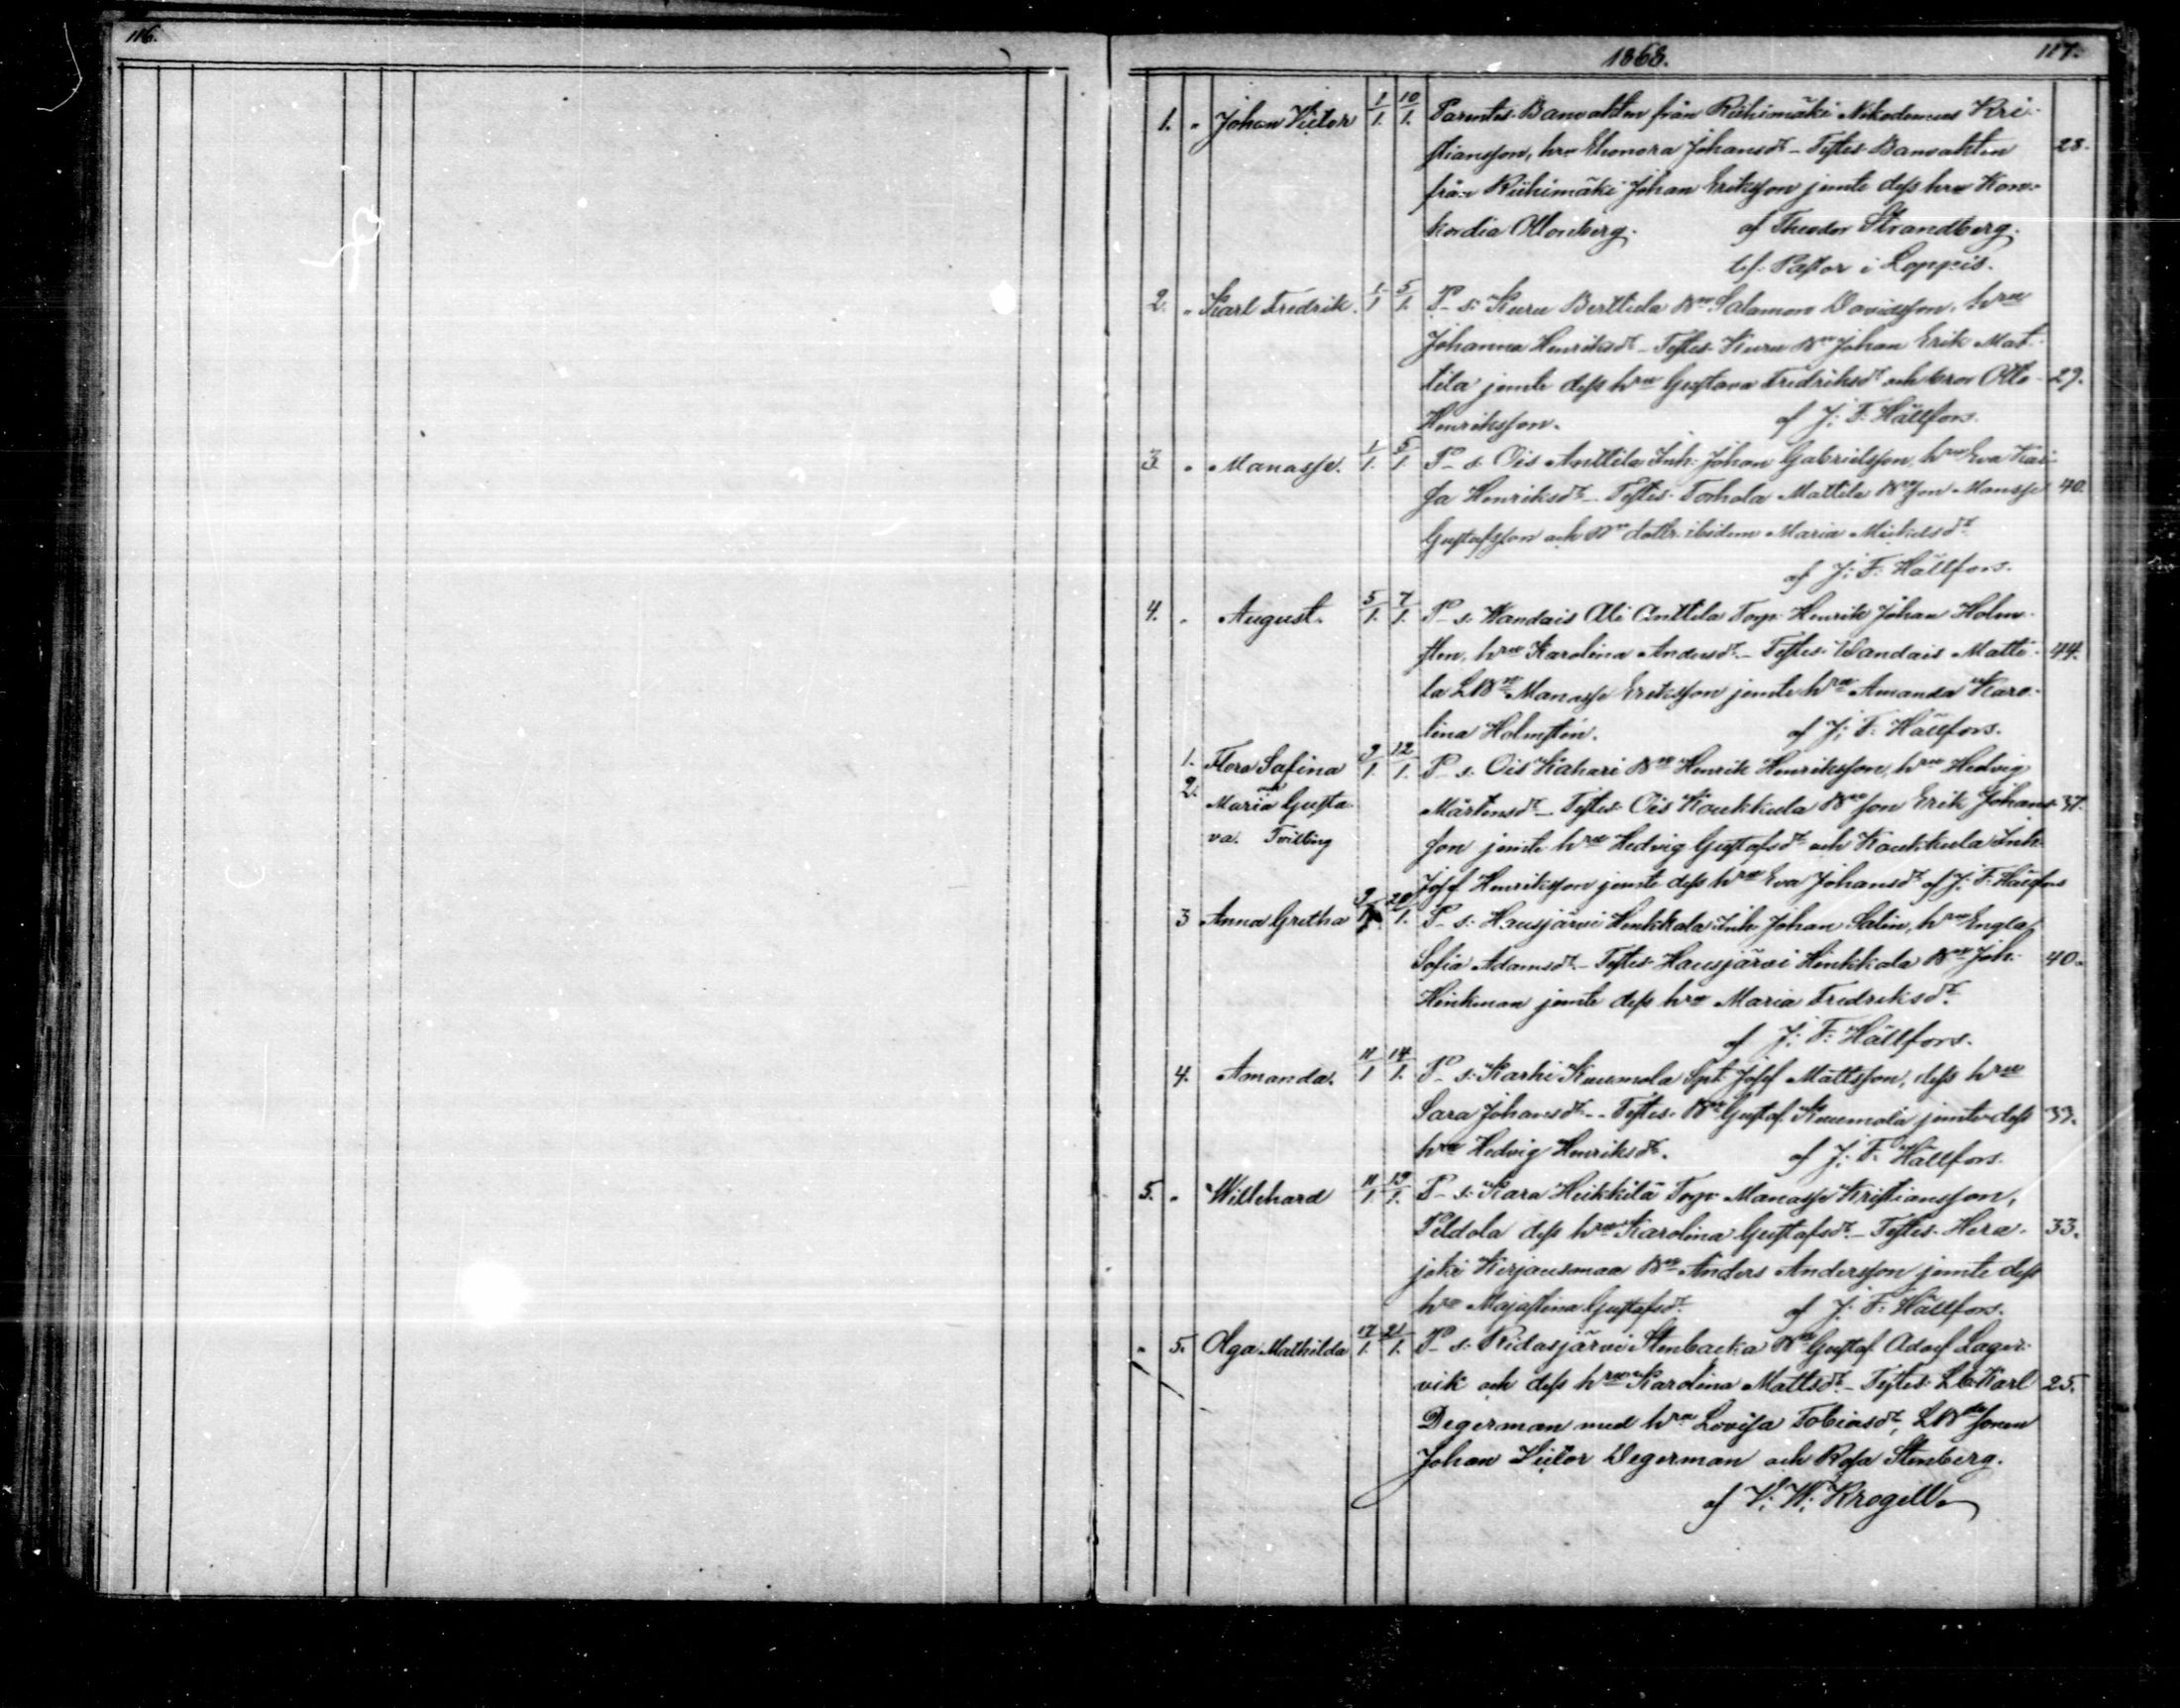 116.
1868. 117.
1. " Johan Victor 1/1. 10/1. Parentes Banvakten från Riihimäki Nikodemus Kri-
stiansson, hru Eleonora Johansdr – Testes Banvakten 28.
från Riihimäki Johan Eriksson jemte dess hru Kon-
kordia Ollonberg. af Theodor Strandberg.
tjf. Pastor i Loppis.
2. " Karl Fredrik. 1/1 5/1. P- s: Kuru Berttula Bn Salamon Davidsson, hru
Johanna Henriksdr – Testes Kuru Bn Johan Erik Mat-
tila jemte dess hru Gustava Fredriksdr och bror Otto 29.
Henriksson. af J: F: Hällfors.
3. " Manasse. 1/1. 5/1. P- s: Ois Anttila Inh: Johan Gabrielsson, hru Eva Kai-
sa Henriksdr – Testes Torhola Mattila Bn son Manasse 40.
Gustafsson och Bn dottr. ibidem Maria Mickelsdr
af J: F: Hällfors.
4. " August. 5/1. 7/1. P- s: Wandais Ali Anttila Torp: Henrik Johan Holm-
sten, hru Karolina Andersdr – Testes Wandais Matti- 44.
la LBn Manasse Eriksson jemte hru Amanda Karo-
lina Holmstén. af J: F: Hällfors.
1. Flora Safina 9/1. 12/1. P- s: Ois Kahari Bn Henrik Henriksson, hru Hedvig
2. Maria Gusta- Mårtensdr – Testes Ois Koukkula Bn son Erik Johans- 37.
va. Tvilling son jemte hru Hedvig Gustafsdr och Koukkula Inh:
Josef Henriksson jemte dess hru Eva Johansdr af J: F: Hällfors
3 Anna Gretha 9/1. 20/1. P- s: Hausjärvi Hinkkala Inh: Johan Salin, hru Engla
Sofia Adamsdr – Testes Hausjärvi Hinkkala Bn Joh: 40.
Hinkman jemte dess hru Maria Fredriksdr
af J: F: Hällfors.
4. Amanda. 11/1 14/1. P- s: Karhi Kuumola Spt: Josef Mattsson, dess hru
Sara Johansdr – Testes Bn Gustaf Kuumola jemte dess 33.
hru Hedvig Henriksdr. af J: F: Hällfors.
5. " Willehard 11/1 19/1. P- s: Kara Heikkilä Torp: Manasse Kristiansson,
Peldola dess hru Karolina Gustafsdr – Testes Hera- 33.
joki Kirjausmaa Bn Anders Andersson jemte dess
hru Majastina Gustafsdr af J: F: Hällfors.
" 5. Olga Mathilda 17/1. 21/1. P- s: Ridasjärvi Stenbacka Bn Gustaf Adolf Lager-
vik och dess hru Karolina Mattsdr – Testes LB Karl 25.
Degerman med hru Lovisa Tobiasdr, LBde sonen
Johan Victor Degerman och Rosa Stenberg.
af V: W: Krogell